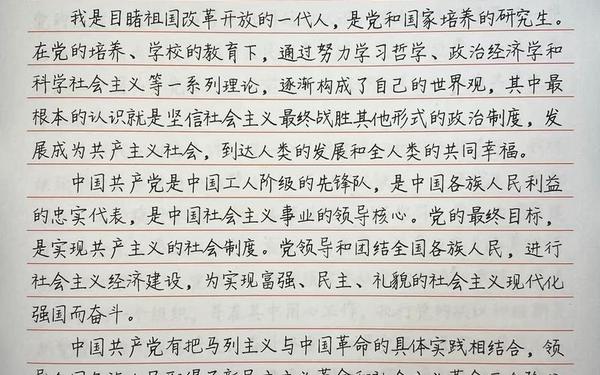 我是目睹祖国改革开放的一代人，是党和国家培养的研究生。
在党的培养、学校的教育下，通过努力学习哲学、政治经济学和
科学社会主义等一系列理论，逐渐构成了自己的世界观，其中最
根本的认识就是坚信社会主义最终战胜其他形式的政治制度，发
展成为共产主义社会，到达人类的发展和全人类的共同幸福。
中国共产党是中国工人阶级的先锋队，是中国各族人民利益
的忠实代表，是中国社会主义事业的领导核心。党的最终目标，
是实现共产主义的社会制度。党领导和团结全国各族人民，进行
社会主义经济建设，为实现富强、民主、礼貌的社会主义现代化
强国而奋斗。
中国共产党有把马列主义与中国革命的具体实践相结合，领